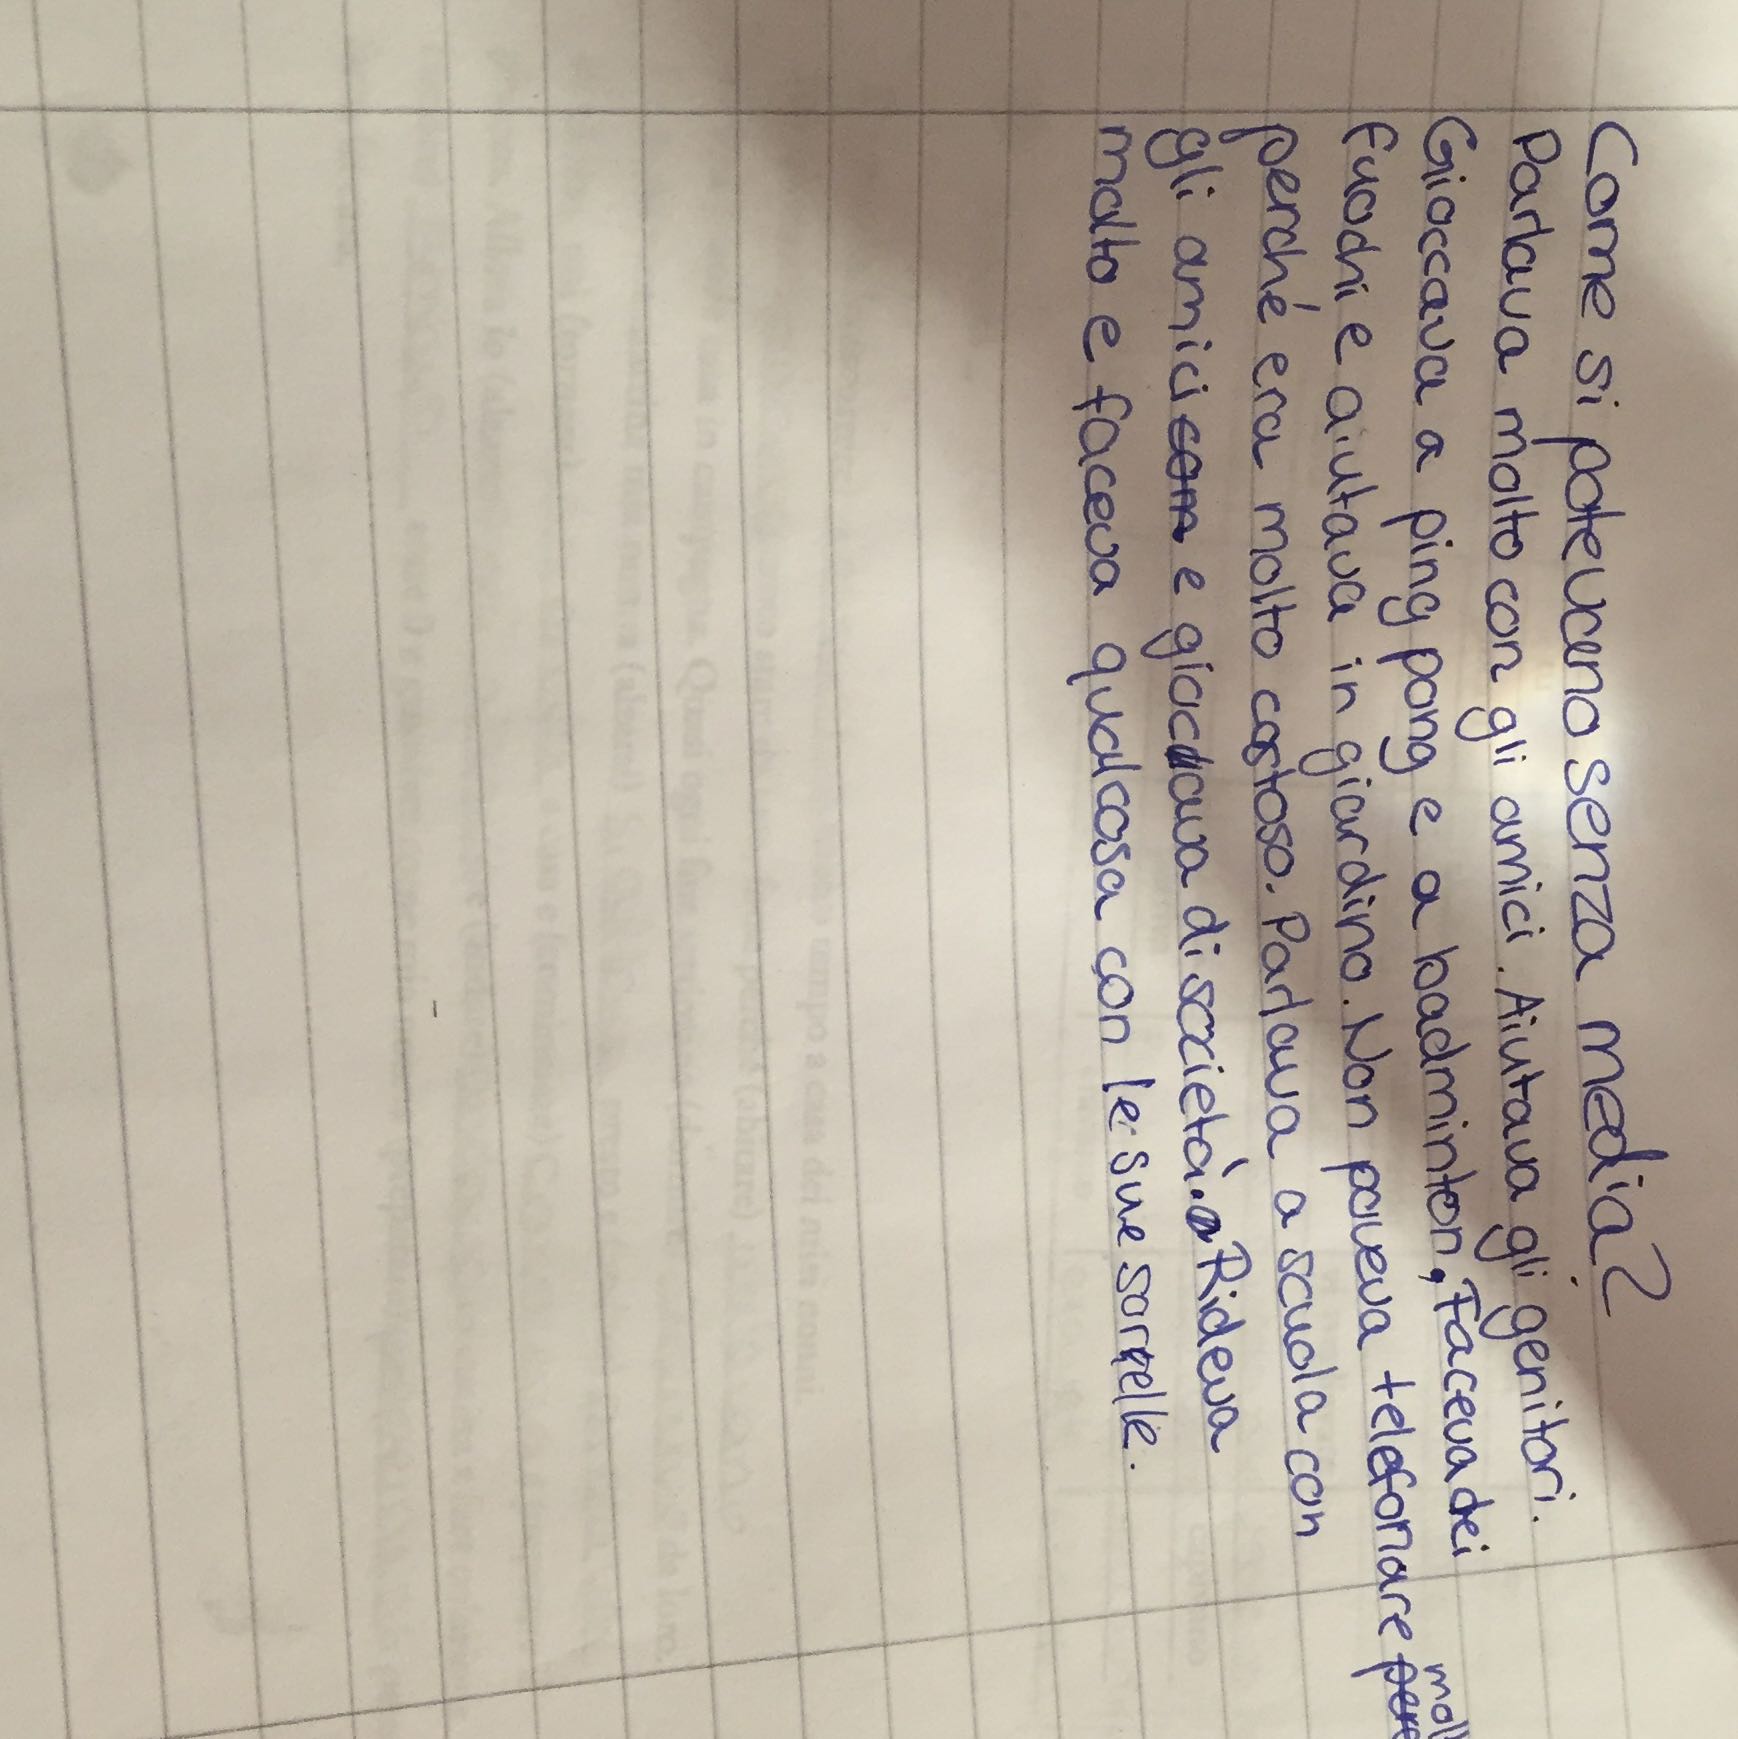 Come si poteveno senza media?
Parlava molto con gli amici. Aiutava gli genitori.
Gioccava a ping pong e a badminton, Faceva dei
fuochi e aiutava in giardino. Non poveva telefonare
perché era molto costoso. Parlava a scuola con
gli amici e giocava di società. Rideva
molto e faceva qualcosa con le sue sorrelle.